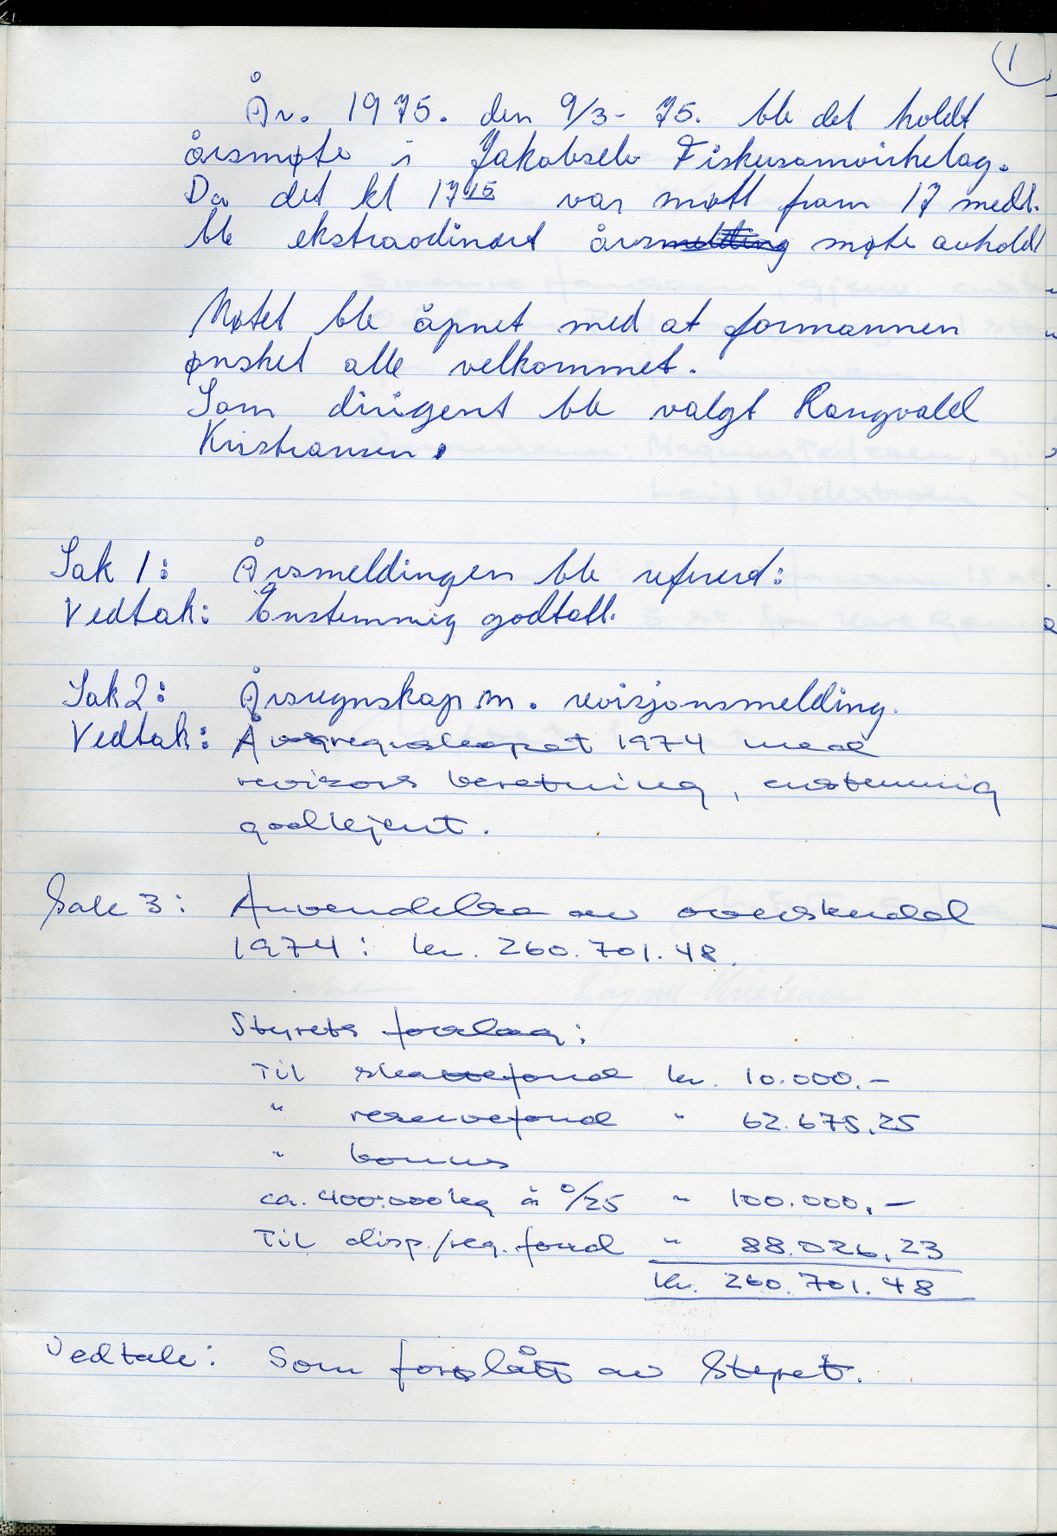 1
År. 1975. den 9/3- 75. ble det holdt
årsmøte i Jakobselv Fiskersamvirkelag.
Da det kl 17 15 var møtt fram 17 medl.
ble ekstraordinært års møte avholdt
Møtet ble åpnet med at formannen
ønsket alle velkommet.
Som dirigent ble valgt Rangvald
Kristiansen.
Sak 1: Årsmeldingen ble refererd:
Vedtak: Enstemmig godtatt.
Sak 2: Årsregnskap m. revisjonsmelding.
Vedtak: Årsregnskapet 1974 med
revisors beretning, enstemmig
godkjent.
Sak 3: Anvendelse av overskudd
1974: kr. 260.701.48
Styrets forslag:
Til skattefond kr. 10.000.-
" reservefond " 62.675,25
" bonus
ca. 400.000 kg à 0/25 " 100.000,-
Til disp./reg. fond " 88.026,23
kr. 260.701.48
Vedtak: Som forslått av Styret.